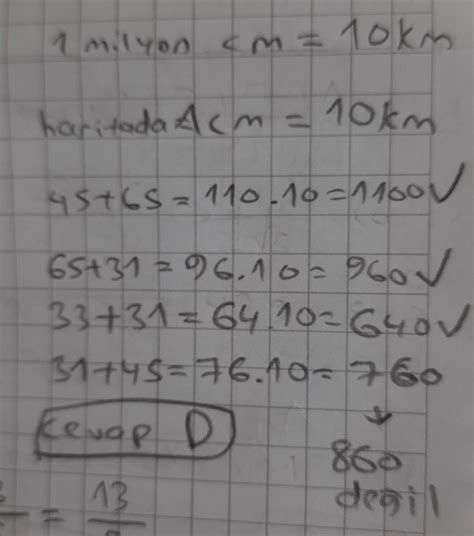 1 milyon cm = 10km
haritada 1cm = 10km
45+65 = 110.10=1100√
65+31 = 96.10= 960√
33+31= 64.10=640√
31+45=76.10= 760
↓
860
değil
Cevap D
= 13